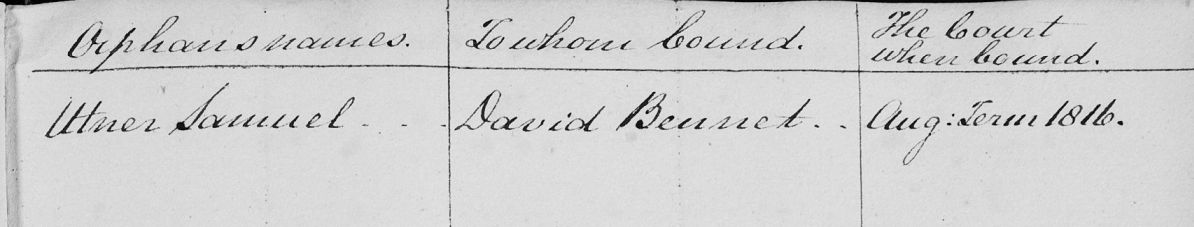 Orphans names. To whom bound. The Court
when bound.
Utner Samuel . . . David Bennet . . Aug: Term 1816.